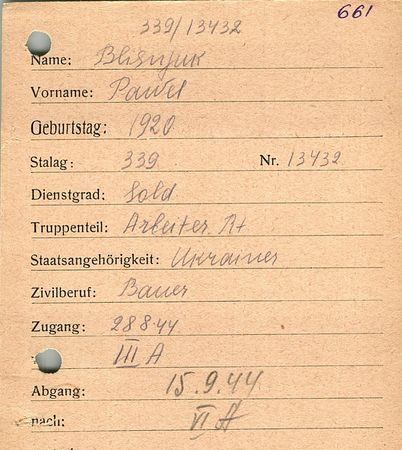 661
339/13432
Name: Blisnjuk
Vorname: Pawel
Geburtstag: 1920
Stalag: 339 Nr. 13432
Dienstgrad: Sold
Truppenteil: Arbeiter. Bt
Staatsangehörigkeit: Ukrainer
Zivilberuf: Bauer
Zugang: 28 8 44
III A
Abgang: 15.9.44
nach: VI A